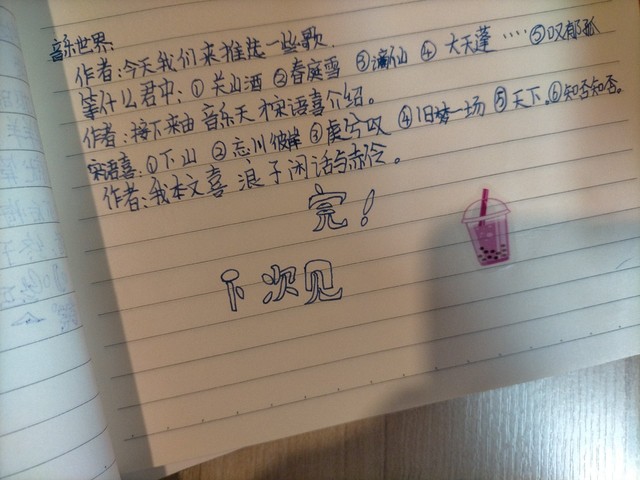 音乐世界:
作者:今天我们来推选一些歌.
等什么君中:①关山酒 ②春庭雪 ③谪仙 ④大天蓬 ····⑤叹郁孤
作者:接下来由音乐天才宋语喜介绍。
宋语喜:①下山 ②忘川彼岸 ③虞兮叹 ④旧梦一场 ⑤天下。⑥知否知否。
作者:我本文喜浪子闲话与赤伶。
完!
下次见